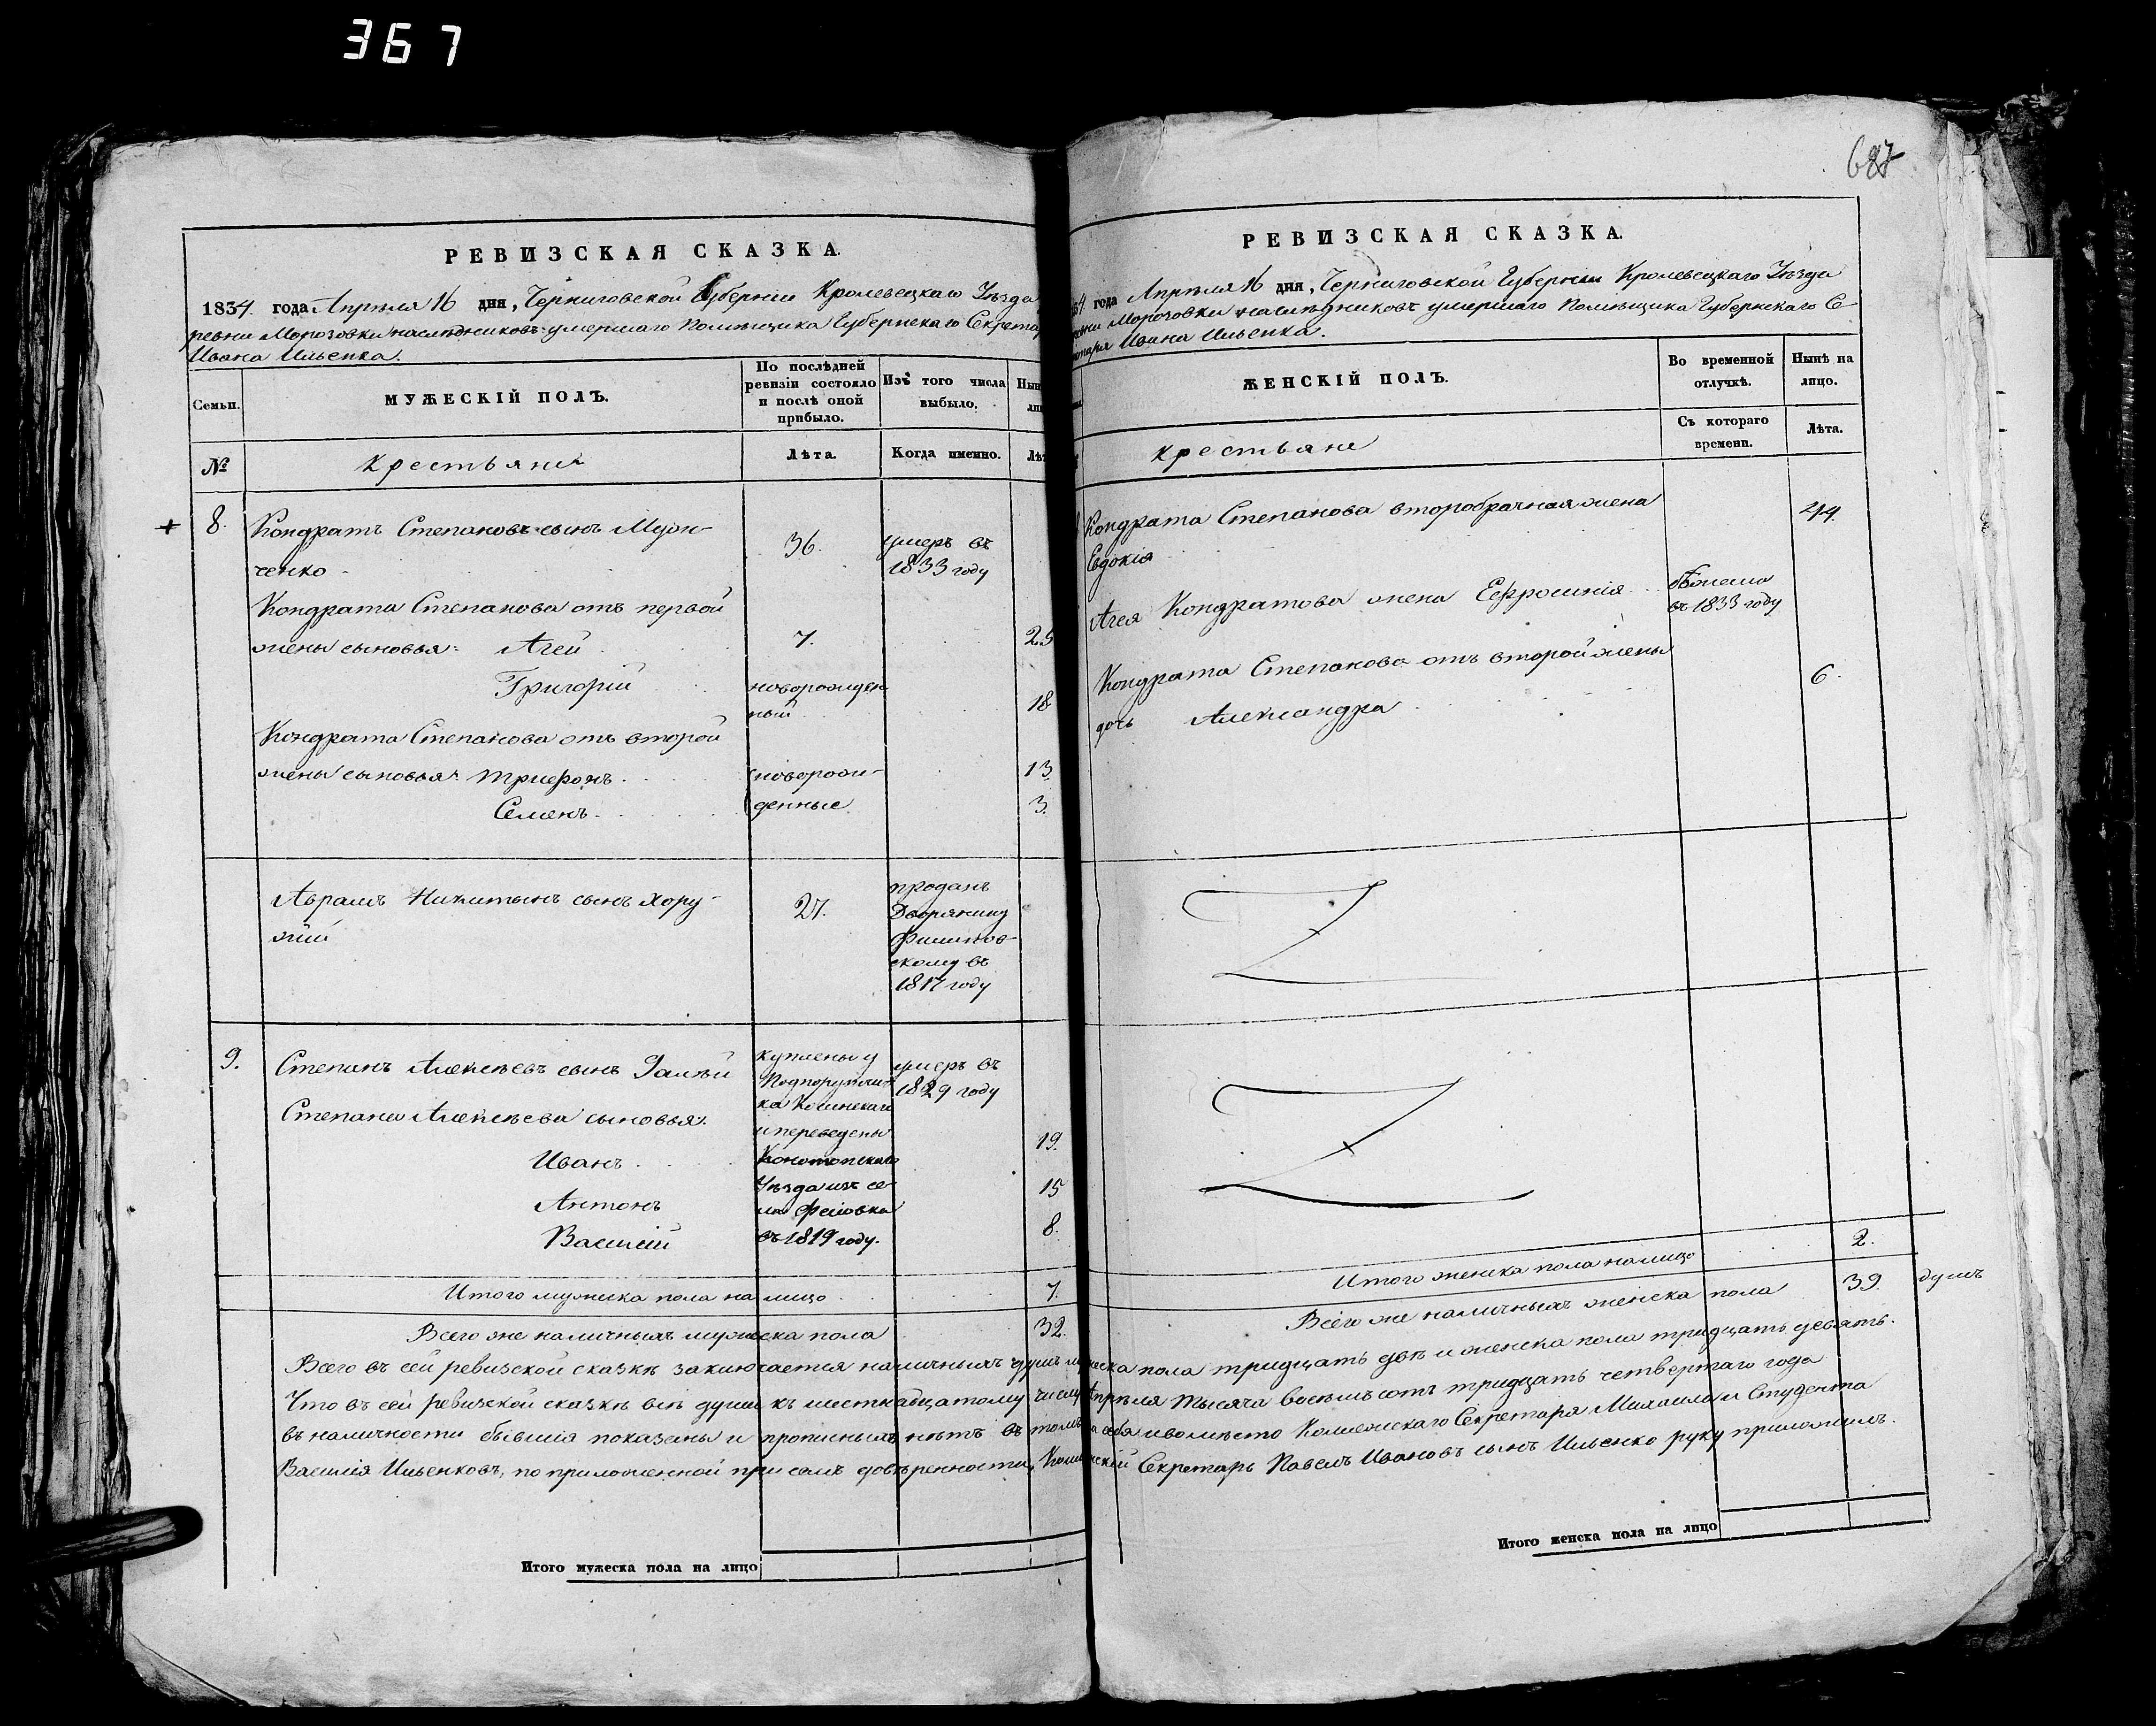 367
687
РЕВИЗСКАЯ СКАЗКА.
1834 года Апрѣля 16 дня, Черниговской Губерніи Кролевецкаго Уѣзда
ревни Морозовки наслѣдниковъ умершаго Помѣщика Губернскаго Секрета
Ивана Ильенка.
Семьи.
МУЖЕСКІЙ ПОЛЪ.
По послѣдней ревизіи состояло и послѣ оной прибыло.
Изъ того числа выбыло.
Нын
ли
№
Крестьяне
Лѣта.
Когда именно.
Лѣ
8. Кондратъ Степановъ сынъ
ченко 36. умеръ въ 1833 году
Кондрата Степанова отъ первой
жены сыновья: Агей 7. 25
Григорій новорожден
ный 18
Кондрата Степанова отъ второй
жены сыновья: Трифонъ новорож- 13
Семенъ денные 3.
Аврамъ Никитинъ сынъ Хору-
жій 27. проданъ
Дворянину
скому въ
1817 году
9. Степанъ Алексѣевъ сынъ умеръ въ
1829 году
Степана Алексѣева сыновья:
Иванъ 19.
Антонъ 15
Василій 8.
куплены у
Подпоручи
ка
и переведены
Конотопскаго
Уѣзда изъ се
ла
въ 1819 году.
Итого мужеска пола на лицо 7.
Всего же наличныхъ мужеска пола 32.
Всего въ сей ревизской сказкѣ заключается наличныхъ душъ му
Что въ сей ревизской сказкѣ всѣ души къ шестнадцатому числу
въ наличности бывшія показаны и прописныхъ нѣтъ въ томъ
Василія Ильенковъ, по приложенной при семъ довѣренности, Колле
Итого мужеска пола на лицо
РЕВИЗСКАЯ СКАЗКА.
34 года Апрѣля 16 дня, Черниговской Губерніи Кролевецкаго Уѣзда
ревни Морозовки наслѣдниковъ умершаго Помѣщика Губернскаго Се-
кретаря Ивана Ильенка.
ЖЕНСКІЙ ПОЛЪ.
Во временной отлучкѣ.
Нынѣ на лицо.
Съ котораго времени.
Лѣта.
Крестьяне
Кондрата Степанова второбрачная жена
Евдокія 44.
Агея Кондратова жена Ефросинія бѣжала
въ 1833 году
Кондрата Степанова отъ второй жены
дочь Александра 6.
Итого женска пола на лицо 2.
Всего же наличныхъ женска пола 39. душъ
жеска пола тридцать двѣ и женска пола тридцать девять.
Апрѣля тысяча восемьсотъ тридцать четвертаго года
за себя и вмѣсто Коллежскаго Секретаря Михаила и Студента
жскій Секретарь Павелъ Ивановъ сынъ Ильенко руку приложилъ.
Итого женска пола на лицо